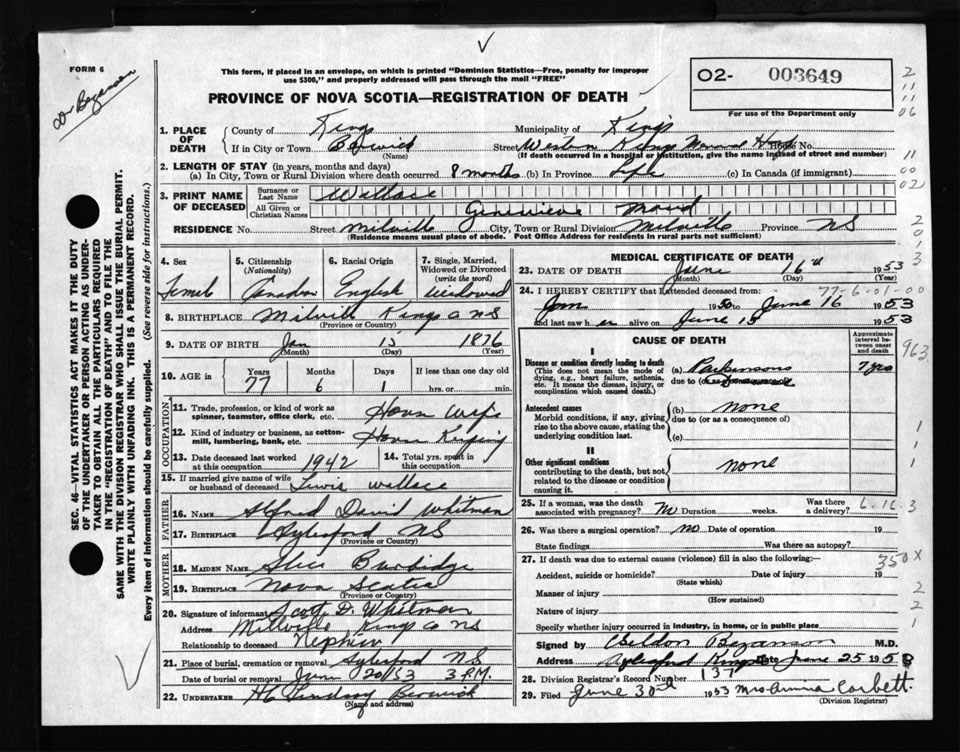 V
FORM 6
Dr Bezanson
This form, if placed in an envelope, on which is printed "Dominion Statistics—Free, penalty for improper
use $300," and properly addressed will pass through the mail "FREE"
PROVINCE OF NOVA SCOTIA—REGISTRATION OF DEATH
O2- 003649
For use of the Department only
2
11
11
06
11
00
02
2
0
1
3
SEC. 46—VITAL STATISTICS ACT MAKES IT THE DUTY
OF THE UNDERTAKER OR PERSON ACTING AS UNDER-
TAKER TO OBTAIN ALL THE PARTICULARS REQUIRED
IN THE "REGISTRATION OF DEATH" AND TO FILE THE
SAME WITH THE DIVISION REGISTRAR WHO SHALL ISSUE THE BURIAL PERMIT.
WRITE PLAINLY WITH UNFADING INK. THIS IS A PERMANENT RECORD.
Every item of information should be carefully supplied. (See reverse side for instructions.)
1. PLACE OF DEATH County of Kings Municipality of Kings
If in City or Town Berwick (Name) Street Western Kings House No.
(If death occurred in a hospital or institution, give the name instead of street and number)
2. LENGTH OF STAY (in years, months and days)
(a) In City, Town or Rural Division where death occurred 8 months (b) In Province Life (c) In Canada (if immigrant)
3. PRINT NAME OF DECEASED Surname or Last Name Wallace
All Given or Christian Names Genevieve Maud
RESIDENCE No. Street Milville City, Town or Rural Division Milville Province NS
(Residence means usual place of abode. Post Office Address for residents in rural parts not sufficient)
4. Sex 5. Citizenship (Nationality) 6. Racial Origin 7. Single, Married, Widowed or Divorced (write the word)
Female Canadian English widowed
8. BIRTHPLACE Milville Kings Co NS
(Province or Country)
9. DATE OF BIRTH Jan 15 1876
(Month) (Day) (Year)
10. AGE in Years Months Days If less than one day old
77 6 1 hrs. or min.
OCCUPATION
11. Trade, profession, or kind of work as spinner, teamster, office clerk, etc. House Wife
12. Kind of industry or business, as cotton-mill, lumbering, bank, etc. House Keeping
13. Date deceased last worked at this occupation 1942 14. Total yrs. spent in this occupation
15. If married give name of wife or husband of deceased Lewis Wallace
FATHER
16. NAME Alfred David Whitman
17. BIRTHPLACE Aylesford NS
(Province or Country)
MOTHER
18. MAIDEN NAME Alice Burbidge
19. BIRTHPLACE Nova Scotia
(Province or Country)
20. Signature of informant Scott D. Whitman
Address Millville Kings Co NS
Relationship to deceased Nephew
21. Place of burial, cremation or removal Aylesford NS
Date of burial or removal June 20/53 3 P.M.
22. UNDERTAKER Lindsay Berwick
(Name and address)
MEDICAL CERTIFICATE OF DEATH
23. DATE OF DEATH June 16th 1953
24. I HEREBY CERTIFY that I attended deceased from: 77-6-01-00
Jan 1950 to June 16 1953
and last saw h er alive on June 15 1953
CAUSE OF DEATH Approximate interval between onset and death
963
I
Disease or condition directly leading to death
(This does not mean the mode of dying, e.g., heart failure, asthenia, etc. It means the disease, injury, or complication which caused death.)
(a) Parkinsons 7 yrs
due to (or as a consequence of)
Antecedent causes
Morbid conditions, if any, giving rise to the above cause, stating the underlying condition last.
(b) none
due to (or as a consequence of)
(c)
1
II
Other significant conditions
contributing to the death, but not related to the disease or condition causing it.
none
1
25. If a woman, was the death associated with pregnancy? No Duration weeks. Was there a delivery? 6-16 3
26. Was there a surgical operation? no Date of operation 19
State findings Was there an autopsy?
350X
27. If death was due to external causes (violence) fill in also the following:
Accident, suicide or homicide? Date of injury 19
(State which)
Manner of injury 2
(How sustained)
Nature of injury 2
Specify whether injury occurred in industry, in home, or in public place 1
Signed by Weldon Bezanson M.D.
Address Aylesford Kings Date June 25 195
28. Division Registrar's Record Number 137
29. Filed June 30th 1953 Mrs Corbett
(Division Registrar)